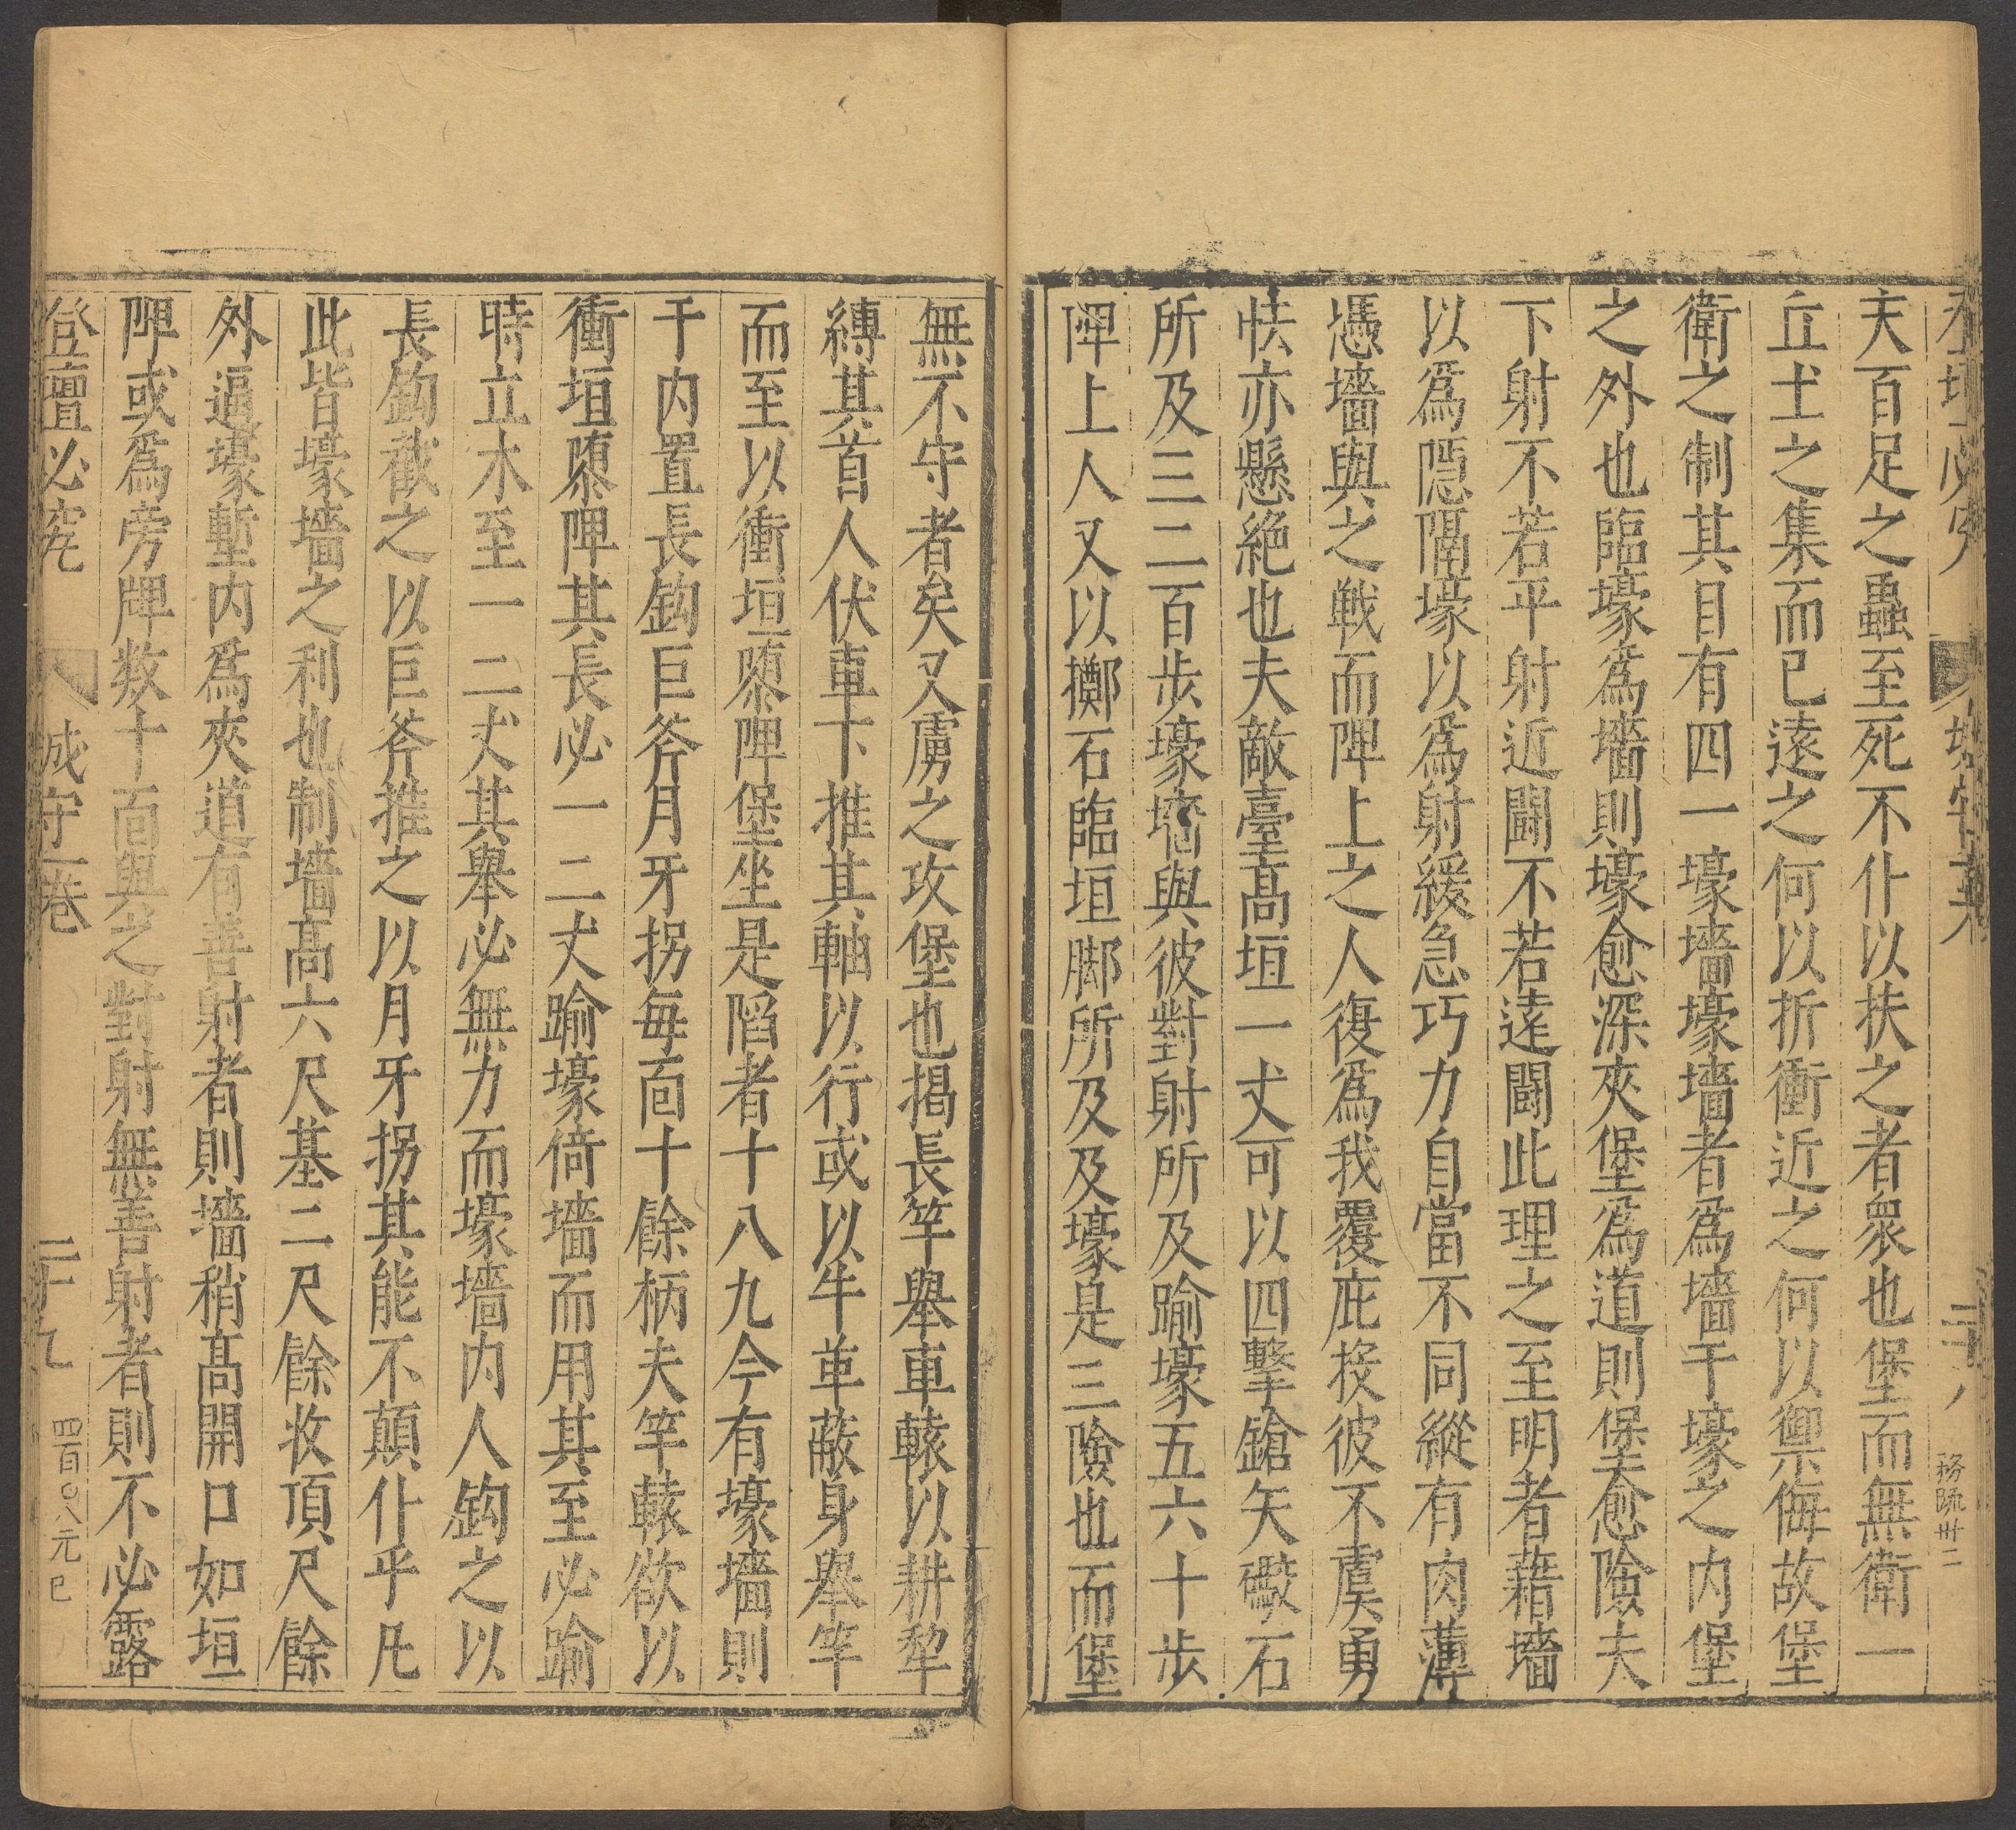 夫百足之蟲至死不仆以扶之者衆也堡而無衛一
丘土之集而已遠之何以折衝近之何以禦侮故堡
衛之制其目有四一壕墻壕墻者爲墻于壕之内堡
之外也臨壕爲墻則壕愈深夾堡爲道則堡愈險夫
下射不若平射近鬭不若遠鬭此理之至明者藉墻
以爲隱隔壕以爲射緩急巧力自當不同縱有肉薄
憑墻與之戰而陴上之人復爲我覆庇按彼不虞勇
怯亦懸絶也夫敵臺高垣一丈可以四擊鎗矢礮石
所及三二百步壕墻與彼對射所及踰壕五六十步
陴上人又以擲石臨垣脚所及及壕是三險也而堡
無不守者矣又虜之攻堡也揭長竿舉車轅以耕犂
縛其首人伏車下推其軸以行或以牛革蔽身舉竿
而至以衝垣隳陴堡坐是陷者十八九今有壕墻則
于内置長鈎巨斧月牙拐每面十餘柄夫竿轅欲以
衝垣隳陴其長必一二丈踰壕倚墻而用其至必踰
時立木至一二丈其舉必無力而壕墻内人鈎之以
長鈎截之以巨斧推之以月牙拐其能不顛仆乎凡
此皆壕墻之利也制墻高六尺基二尺餘收頂尺餘
外逼壕塹内爲夾道有善射者則墻稍高開口如垣
陴或爲旁牌數十面與之對射無善射者則不必露
登壇必究
城守一卷
二十九
四百〇八元巳